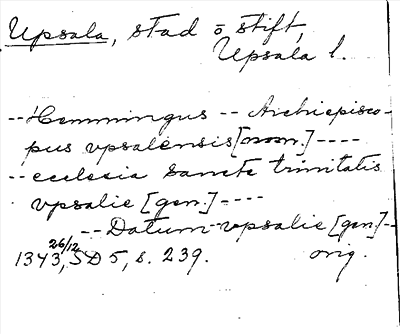 Upsala, stad o stift,
Upsala l.
-- Hemmingus -- Archiepisco-
pus vpsalensis [nom.] ----
-- ecclesia sancte trinitatis
vpsalie [gen.] ----
-- Datum vpsalie [gen] --
1343 26/12, SD 5, s. 239. orig.